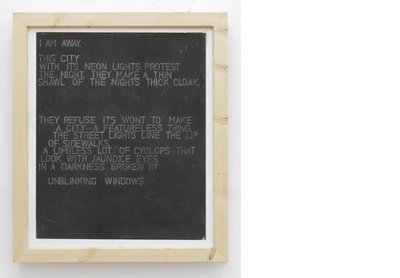 I AM AWAY.
THIS CITY
WITH ITS NEON LIGHTS PROTEST
THE NIGHT. THEY MAKE A THIN
SHAWL OF THE NIGHTS THICK CLOAK.
THEY REFUSE ITS WONT TO MAKE
A CITY—A FEATURELESS THING.
THE STREET LIGHTS LINE THE LIP
OF SIDEWALKS.
A LIMBLESS LOT OF CYCLOPS THAT
LOOK WITH JAUNDICE EYES
IN A DARKNESS BROKEN BY
UNBLINKING WINDOWS